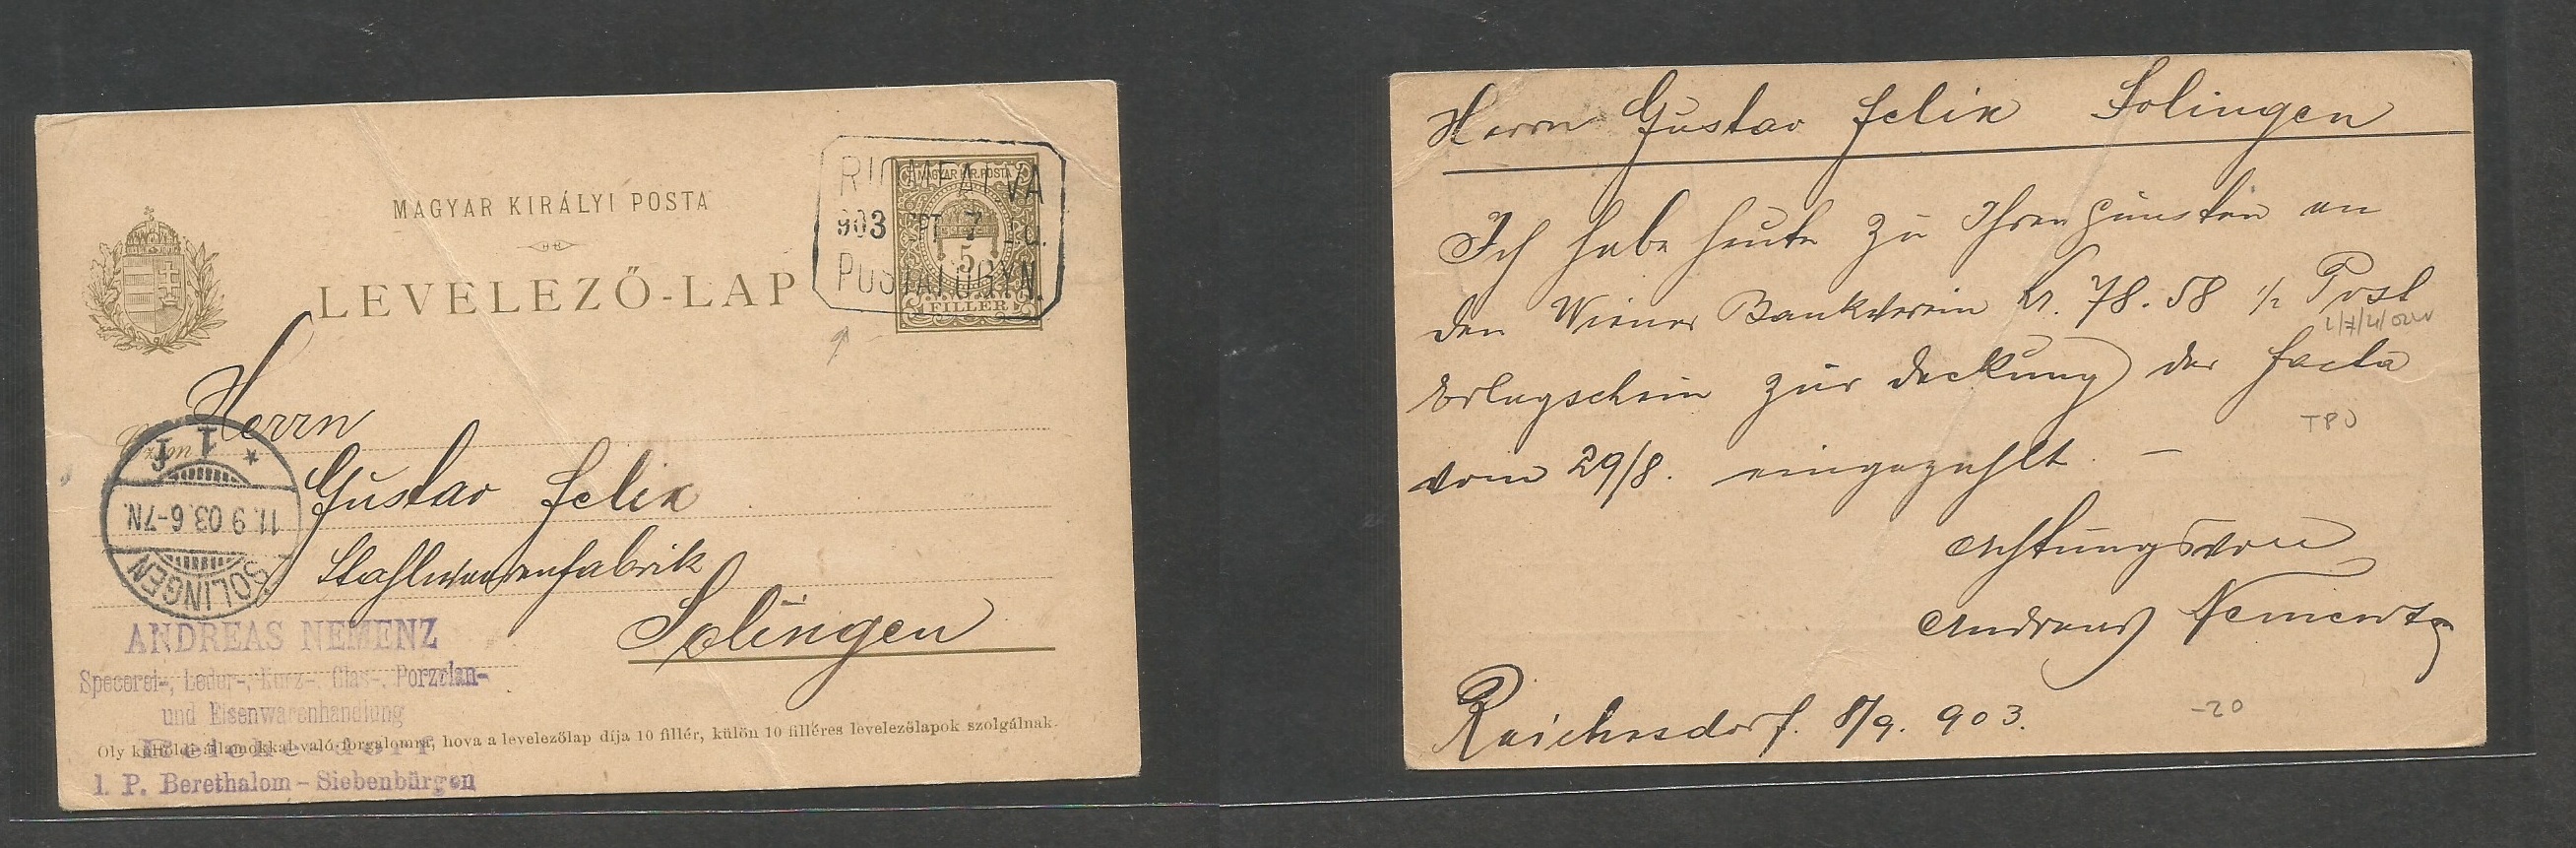 MAGYAR KIRÁLYI POSTA
LEVELEZŐ-LAP
MAGYAR KIR. POSTA
5
FILLÉR
903 SPT 7
Herrn
Gustav Felix
Stahlwarenfabrik
Solingen
SOLINGEN
11.9.03.6-7N.
1 f
*
ANDREAS NEMENZ
Specerei-, Leder-, Kurz-, Glas-, Porzelan-
und Eisenwarenhandlung
Reichesdorf
l. P. Berethalom - Siebenbürgen
Oly külföldi államokkal való forgalomra, hova a levelezőlap díja 10 fillér, külön 10 filléres levelezőlapok szolgálnak.
Herrn Gustav Felix Solingen
Ich habe heute zu Ihren gunsten an
den Wiener Bankverein Kr. 78.58 ½ Post
Erlagschein zur deckung der facta
vom 29/8. eingezahlt. —
Achtungsvoll
Andreas Nementz
Reichesdorf. 8/9. 903.
TPO
-20